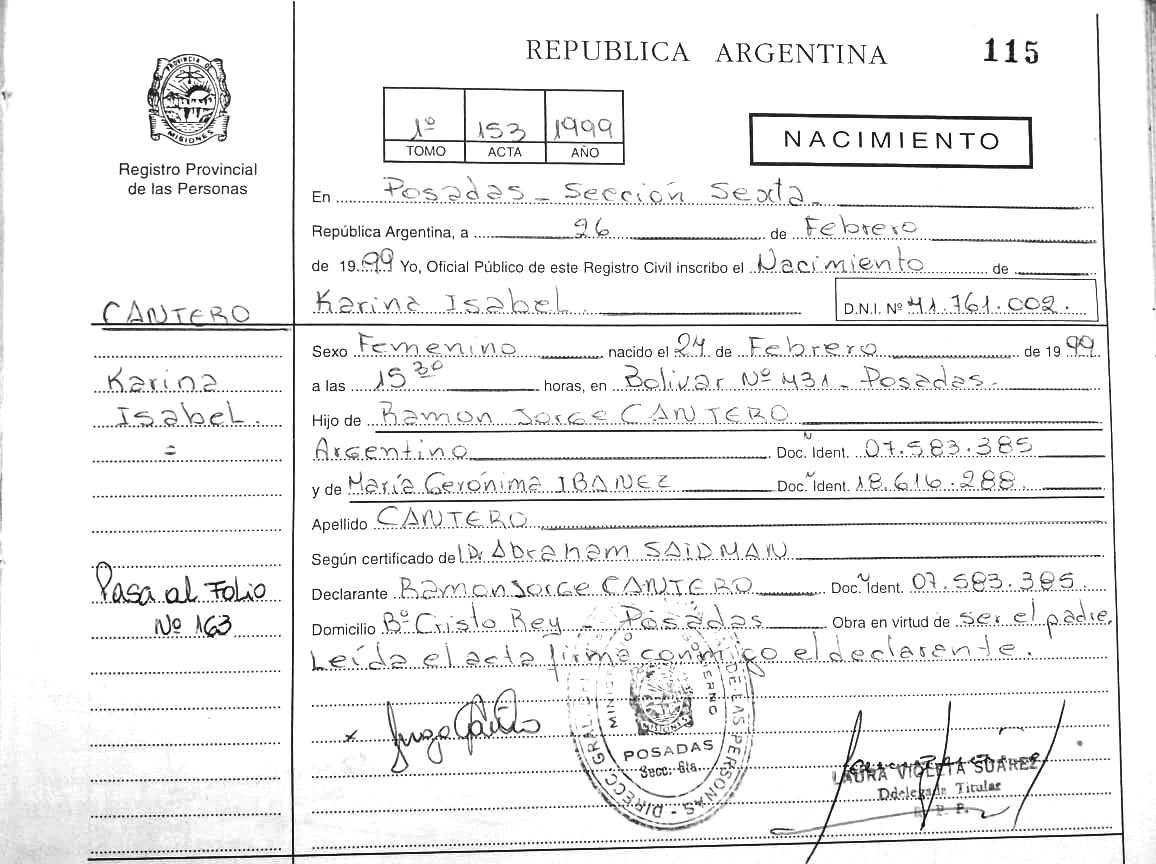 REPUBLICA ARGENTINA 115
PROVINCIA DE MISIONES
Registro Provincial
de las Personas
1º 153 1999
TOMO ACTA AÑO
NACIMIENTO
En Posadas - Sección Sexta -
República Argentina, a 26 de Febrero
de 19 99 Yo, Oficial Público de este Registro Civil inscribo el Nacimiento de
Karina Isabel D.N.I. Nº 41.761.002.
CANTERO
Karina
Isabel.
=
Sexo Femenino nacido el 24 de Febrero de 19 99
a las 15 30 horas, en Bolivar Nº 431 - Posadas.
Hijo de Ramon Jorge CANTERO
Argentino Doc. Ident. 07.583.385
y de María Gerónima IBAÑEZ Doc. Ident. 18.616.288.
Apellido CANTERO
Según certificado de l Dr. Abraham SAIDMAN
Declarante Ramon Jorge CANTERO Doc. Ident. 07.583.385
Domicilio Bº Cristo Rey - Posadas Obra en virtud de ser el padre.
Leída el acta firma conmigo el declarante.
Pasa al Folio
Nº 163
x
DIRECC. GRAL. DE LAS PERSONAS
POSADAS
Secc. 6ta.
LAURA VIOLETA SUAREZ
Ddelegada Titular
R. P. P.